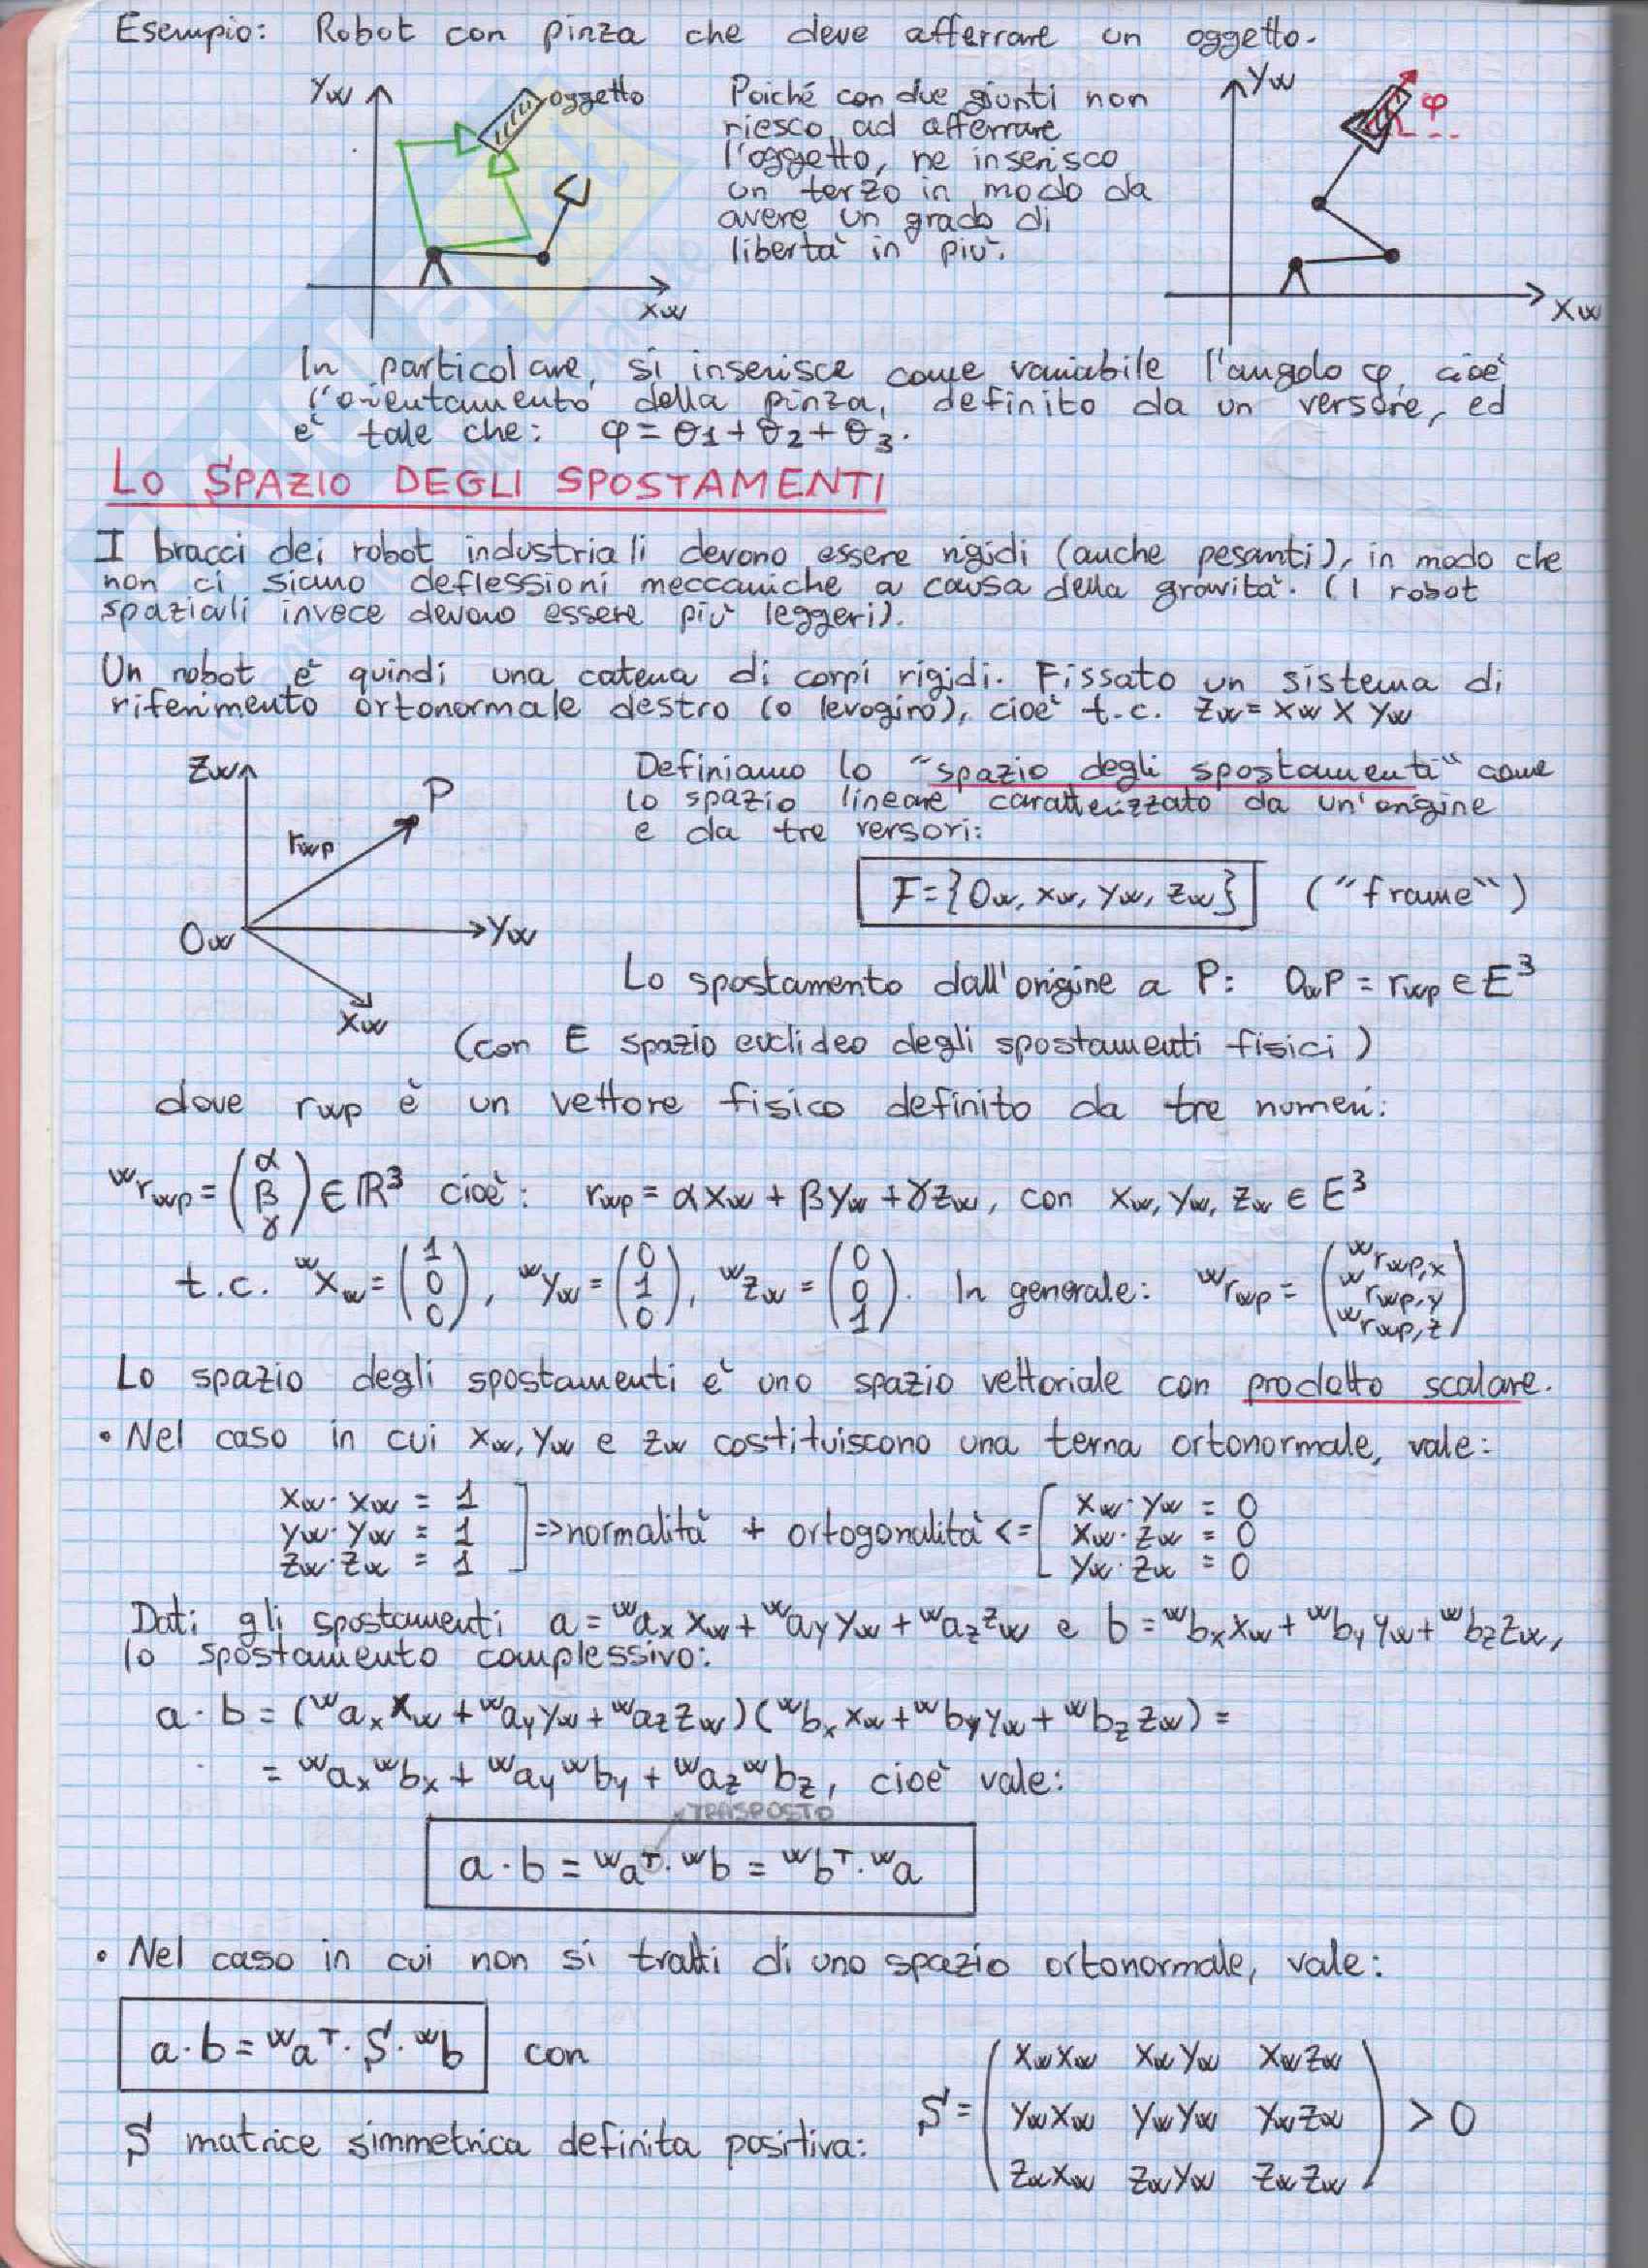 Esempio: Robot con pinza che deve afferrare un oggetto.
Yw
oggetto
Xw
Poiché con due giunti non
riesco ad afferrare
l'oggetto, ne inserisco
un terzo in modo da
avere un grado di
libertà in più.
Yw
φ
Xw
In particolare, si inserisce come variabile l'angolo φ, cioè
l'orientamento della pinza, definito da un versore, ed
è tale che: φ = θ1 + θ2 + θ3.
LO SPAZIO DEGLI SPOSTAMENTI
I bracci dei robot industriali devono essere rigidi (anche pesanti), in modo che
non ci siano deflessioni meccaniche a causa della gravità. (I robot
spaziali invece devono essere più leggeri).
Un robot è quindi una catena di corpi rigidi. Fissato un sistema di
riferimento ortonormale destro (o levogiro), cioè t.c. Zw = Xw X Yw
Zw
P
rwp
Ow
Yw
Xw
Definiamo lo "spazio degli spostamenti" come
lo spazio lineare caratterizzato da un'origine
e da tre versori:
F = {Ow, Xw, Yw, Zw} ("frame")
Lo spostamento dall'origine a P: OwP = rwp ∈ E³
(con E spazio euclideo degli spostamenti fisici)
dove rwp è un vettore fisico definito da tre numeri:
ʷrwp = (α β γ) ∈ ℝ³ cioè: rwp = αXw + βYw + γZw, con Xw, Yw, Zw ∈ E³
t.c. ʷXw = (1 0 0), ʷYw = (0 1 0), ʷZw = (0 0 1). In generale: ʷrwp = (ʷrwp,x ʷrwp,y ʷrwp,z)
Lo spazio degli spostamenti è uno spazio vettoriale con prodotto scalare.
• Nel caso in cui Xw, Yw e Zw costituiscono una terna ortonormale, vale:
Xw · Xw = 1
Yw · Yw = 1
Zw · Zw = 1
=> normalità + ortogonalità <=
Xw · Yw = 0
Xw · Zw = 0
Yw · Zw = 0
Dati gli spostamenti a = ʷax Xw + ʷay Yw + ʷaz Zw e b = ʷbx Xw + ʷby Yw + ʷbz Zw,
lo spostamento complessivo:
a · b = (ʷax Xw + ʷay Yw + ʷaz Zw)(ʷbx Xw + ʷby Yw + ʷbz Zw) =
= ʷax ʷbx + ʷay ʷby + ʷaz ʷbz, cioè vale:
TRASPOSTO
a · b = ʷaᵀ · ʷb = ʷbᵀ · ʷa
• Nel caso in cui non si tratti di uno spazio ortonormale, vale:
a · b = ʷaᵀ · S · ʷb con
S matrice simmetrica definita positiva:
XwXw XwYw XwZw
S = YwXw YwYw YwZw > 0
ZwXw ZwYw ZwZw